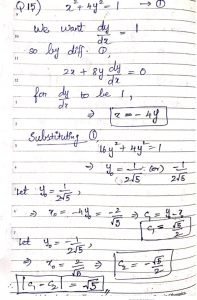 Q 15) x² + 4y² = 1 → ①
We want dy/dx = 1
so by diff. ①,
2x + 8y dy/dx = 0
for dy/dx to be 1,
⇒ x = -4y
Substituting ①
16y² + 4y² = 1
⇒ y₀ = 1/2√5 (or) -1/2√5
let y₀ = 1/2√5,
⇒ x₀ = -4y₀ = -2/√5 ⇒ C₁ = y - x
C₁ = √5/2
let y₀ = -1/2√5,
⇒ x₀ = 2/√5 ⇒ C₂ = -√5/2
|C₁ - C₂| = √5